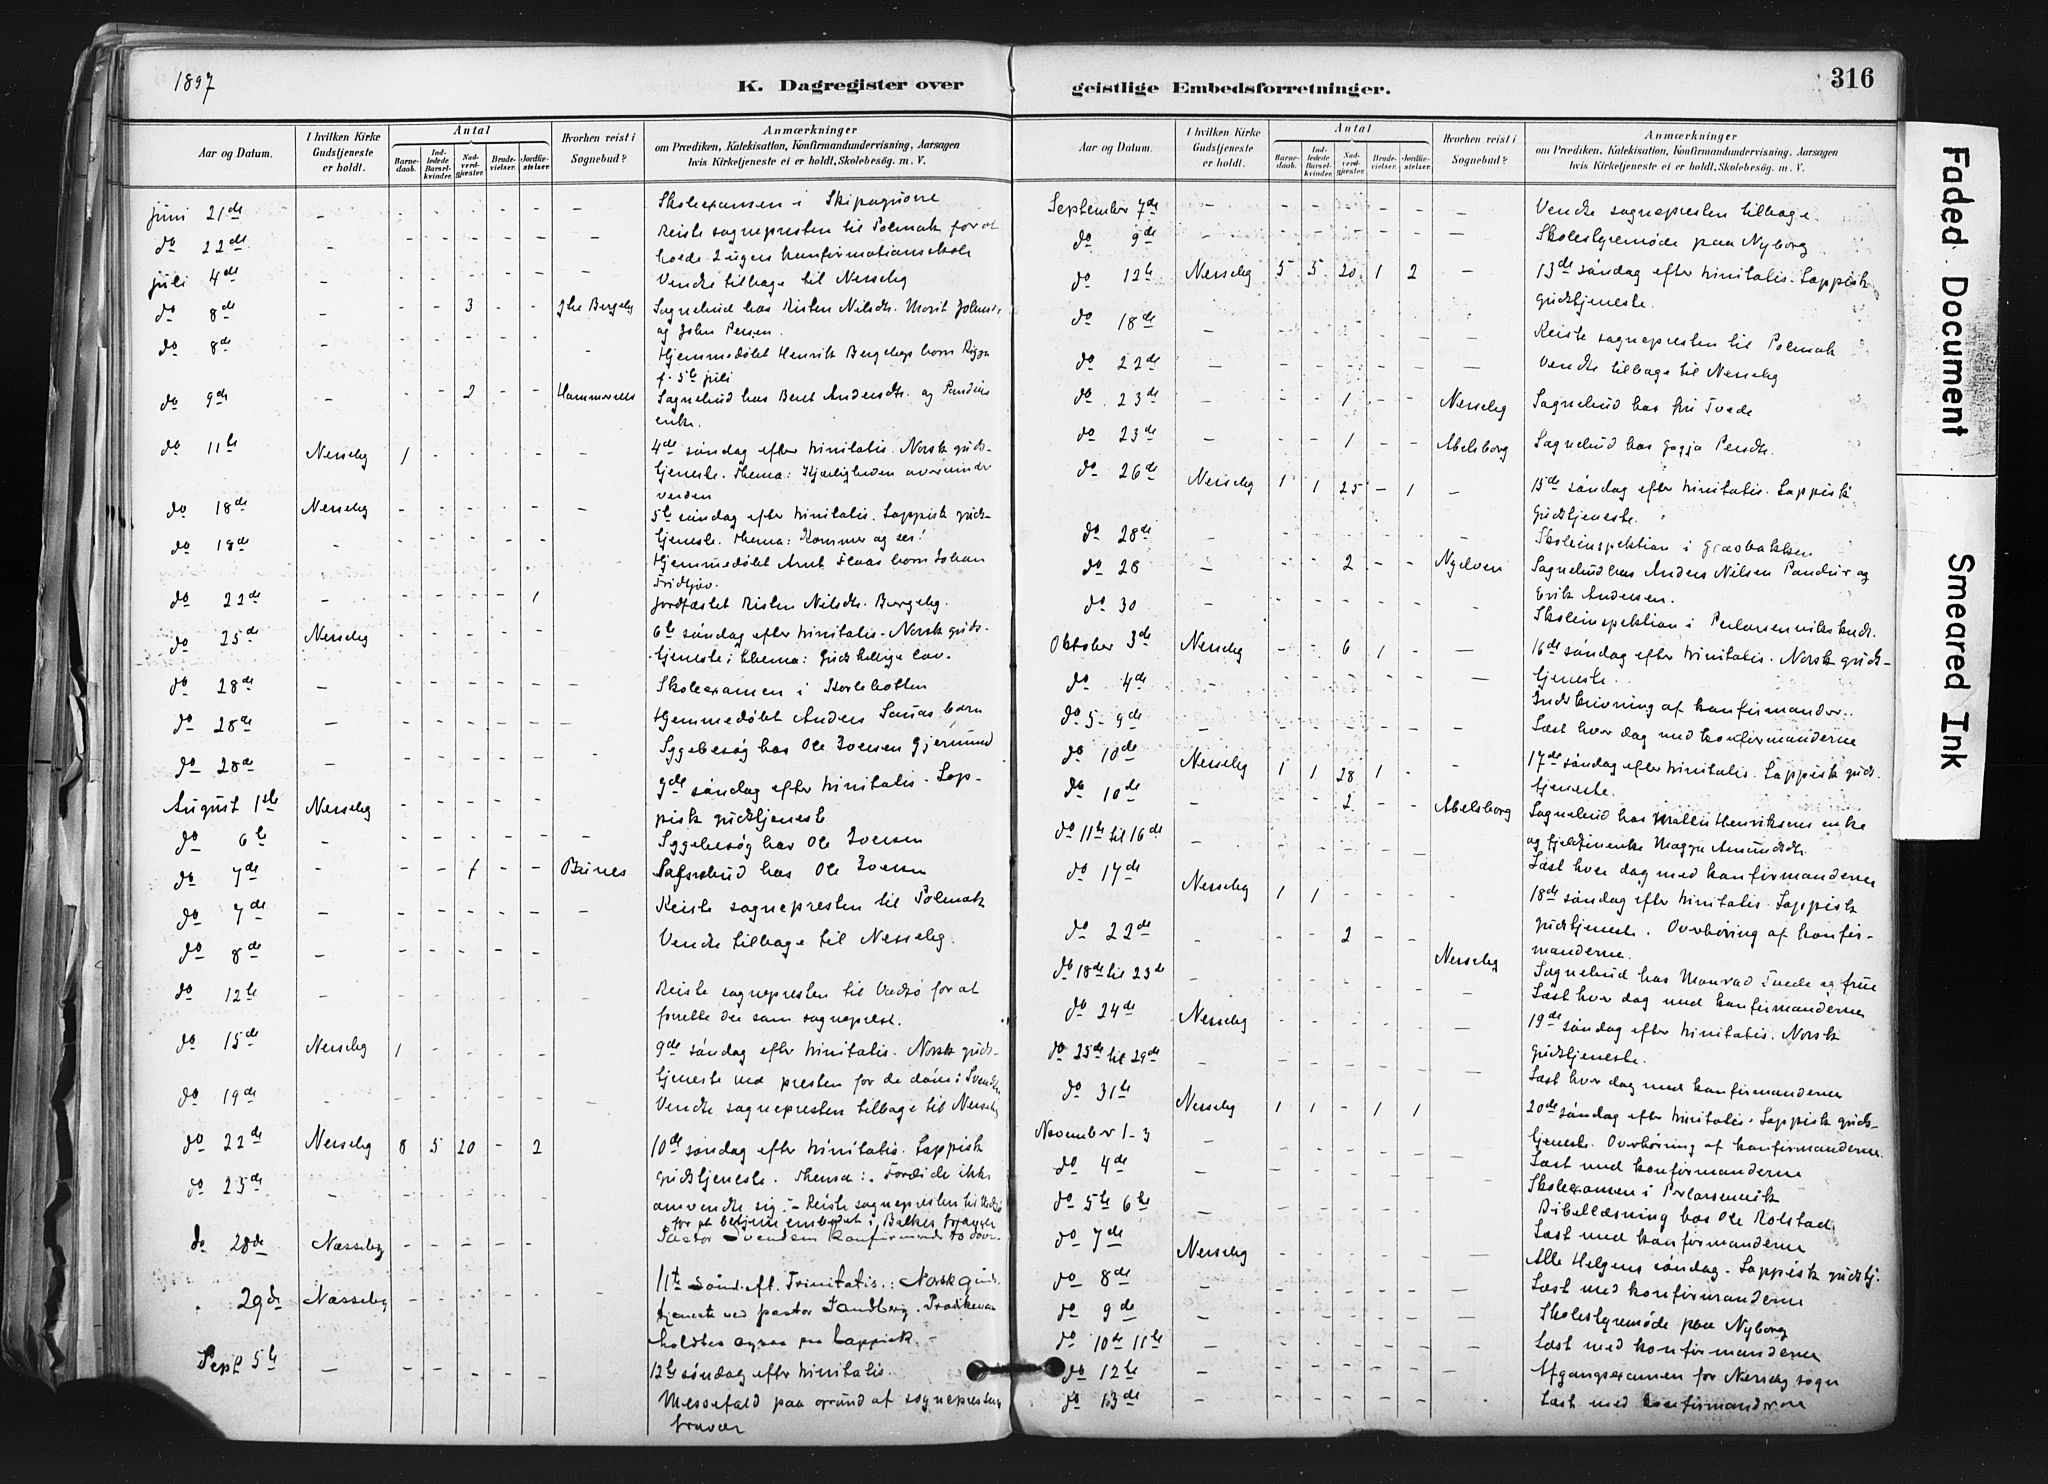 1897
K. Dagregister over
geistlige Embedsforretninger.
316
Aar og Datum.
I hvilken Kirke Gudstjeneste er holdt.
Antal
Barnedaab.
Indledede Barselkvinder.
Nadverdgjæster.
Brudevielser.
Jordfæstelser.
Hvorhen reist i Sognebud?
Anmærkninger
om Prædiken, Katekisation, Konfirmandundervisning, Aarsagen
hvis Kirketjeneste ei er holdt, Skolebesög. m. V.
juni 21de - - - - - - - Skoleexamen i Skipagurre
do 22de - - - - - - - Reiste sognepresten til Polmak for at
holde 2 ugers konfirmationsskole
juli 4de - - - - - - - Vendte tilbage til Nesseby
do 8de - - - 3 - - Bergeby Sognebud hos Risten Nilsdtr. Marit
og John Persen.
do 8de - - - - - - - Hjemmedøbt Henrik Bergebys barn
f. 5te juli
do 9de - - - 2 - - Sognebud hos Beret Andersdtr. og
enke.
do 11te Nesseby 1 - - - - - 4de søndag efter trinitatis. Norsk guds-
tjeneste. Thema: Kjærligheden overvinder
verden
do 18de Nesseby - - - - - - 5te søndag efter trinitatis. Lappisk guds-
tjeneste. Thema: Kommer og ser!
do 18de - - - - - - Hjemmedøbt barn Johan
Fridtjov.
do 22de - - - - - 1 Jordfæstet Risten Nilsdtr. Bergeby.
do 25de Nesseby - - - - - 6te søndag efter trinitatis. Norsk guds-
tjeneste; thema: Guds hellige lov.
do 28de - - - - - - - Skoleexamen i
do 28de - - - - - - - Hjemmedøbt Anders barn
do 28de - - - - - - - Sygebesøg hos Ole Iversen
August 1ste Nesseby - - - - - søndag efter trinitatis. Lap-
pisk gudstjeneste
do 6te - - - - - - - Sygebesøg hos Ole Iversen
do 7de - - - 1 - - Bunes Sognebud hos Ole Iversen
do 7de - - - - - - - Reiste sognepresten til Polmak
do 8de - - - - - - Vendte tilbage til Nesseby.
do 12te - - - - - - - Reiste sognepresten til Vadsø for at
forrette der som sogneprest.
do 15de Nesseby 1 - - - - 9de søndag efter trinitatis. Norsk guds-
tjeneste ved presten for de døve:
do 19de - - - - - - - Vendte sognepresten tilbage til Nesseby
do 22de Nesseby 8 5 20 - 2 10de søndag efter trinitatis. Lappisk
gudstjeneste. Thema: Fordi de ikke
do 23de - - - - - omvendte sig. - Reiste sognepresten til Vadsø
for at betjene embedet i
do 28de Næsseby - - - - - - Pastor Svendsen konfirmerede
29de Næsseby - - - - - - 11te sønd. eft. Trinitatis.: Norsk guds-
tjeneste ved pastor Sandberg. Prædikenen
holdtes ogsaa paa lappisk. -
Sept 5te - - - - - - 12te søndag efter trinitatis.
Messefald paa grund af sogneprestens
fravær
Aar og Datum.
I hvilken Kirke Gudstjeneste er holdt.
Antal
Barnedaab.
Indledede Barselkvinder.
Nadvergjæster.
Brudevielser.
Jordfæstelser.
Hvorhen reist i Sognebud?
Anmærkninger
om Prædiken, Katekisation, Konfirmandundervisning, Aarsagen
hvis Kirketjeneste ei er holdt, Skolebesög. m. V.
September 7de - - - - - - - Vendte sognepresten tilbage.
do 9de - - - - - - - Skolestyremøde paa Nyborg
do 12te Nesseby 5 5 20 1 2 - 13de søndag efter trinitatis. Lappisk
gudstjeneste.
do 18de - - - - - - - Reiste sognepresten til Polmak
do 22de - - - - - - - Vendte tilbage til Nesseby
do 23de - - - 1 - - Nesseby Sognebud hos fru Tvede
do 23de - - - 1 - - Abelsborg Sognebud hos Persdtr.
do 26de Nesseby 1 1 25 - 1 - 15de søndag efter trinitatis. Lappisk
gudstjeneste.
do 28de - - - - - - Skoleinspektion i Græsbakken
do 28 - - - 2 - - Nyelven Sognebud hos Anders Nilsen Pandur og
Erik Andersen.
do 30 - - - - - - - Skoleinspektion i
Oktober 3de Nesseby - - 6 1 - - 16de søndag efter trinitatis. Norsk guds-
tjeneste.
do 4de - - - - - - - Indskrivning af konfirmander.
do 5-9de - - - - - - - Læst hver dag med konfirmanderne
do 10de Nesseby 1 1 28 1 - 17de søndag efter trinitatis. Lappisk guds-
tjeneste.
do 10de - - - 2 - - Abelsborg Sognebud hos Henriksens enke
og Amundsdtr.
do 11te til 16de - - - - - - Læst hver dag med konfirmanderne
do 17de Nesseby 1 1 - - - 18de søndag efter trinitatis. Lappisk
gudstjeneste. Overhøring af konfir-
manderne.
do 22de - - - 2 - - Nesseby Sognebud hos Monrad Tvede og frue
do 18de til 23de - - - - - - - Læst hver dag med konfirmanderne
do 24de Nesseby - - - - - - 19de søndag efter trinitatis. Norsk
gudstjeneste.
do 25de til 29de - - - - - - - Læst hver dag med konfirmanderne
do 31te Nesseby 1 1 - 1 1 - 20de søndag efter trinitatis. Lappisk guds-
tjeneste. Overhøring af konfirmanderne.
November 1-3 - - - - - - - Læst med konfirmanderne
do 4de - - - - - - - Skoleexamen i
do 5te 6te - - - - - - - Bibellæsning hos Ole Rolstad
Læst med konfirmanderne
do 7de Nesseby - - - - - - Alle Helgens søndag. Lappisk gudstj.
do 8de - - - - - - - Læst med konfirmanderne
do 9de - - - - - - - Skolestyremøde paa Nyborg
do 10de 11te - - - - - - - Læst med konfirmanderne
do 12te - - - - - - - Afgangsexamen for Nesseby sogn
do 13de - - - - - - - Læst med konfirmanderne
Faded Document
Smeared Ink